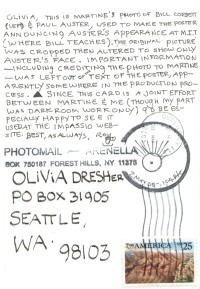 OLIVIA, THIS IS MARTINE'S PHOTO OF BILL CORBETT
(LEFT) & PAUL AUSTER, USED TO MAKE THE POSTER
ANNOUNCING AUSTER'S APPEARANCE AT M.I.T.
(WHERE BILL TEACHES). THE ORIGINAL PICTURE
WAS CROPPED THEN ALTERED TO SHOW ONLY
AUSTER'S FACE. IMPORTANT INFORMATION
—INCLUDING CREDITING THE PHOTO TO MARTINE
—WAS LEFT OUT OF TEXT OF THE POSTER, APP-
ARENTLY SOMEWHERE IN THE PRODUCTION PRO-
CESS. ▲ SINCE THIS CARD IS A JOINT EFFORT
BETWEEN MARTINE & ME (THOUGH MY PART
WAS DARKROOM WORK ONLY) I'D BE ES-
PECIALLY HAPPY TO SEE IT
USED AT THE IMPASSIO WEB-
SITE. BEST, AS ALWAYS,
PHOTOMAIL — ARENELLA
BOX 750187 FOREST HILLS, NY 11375
OLIVIA DRESHER
PO BOX 31905
SEATTLE,
WA.
98103
AMERICA
USA 25